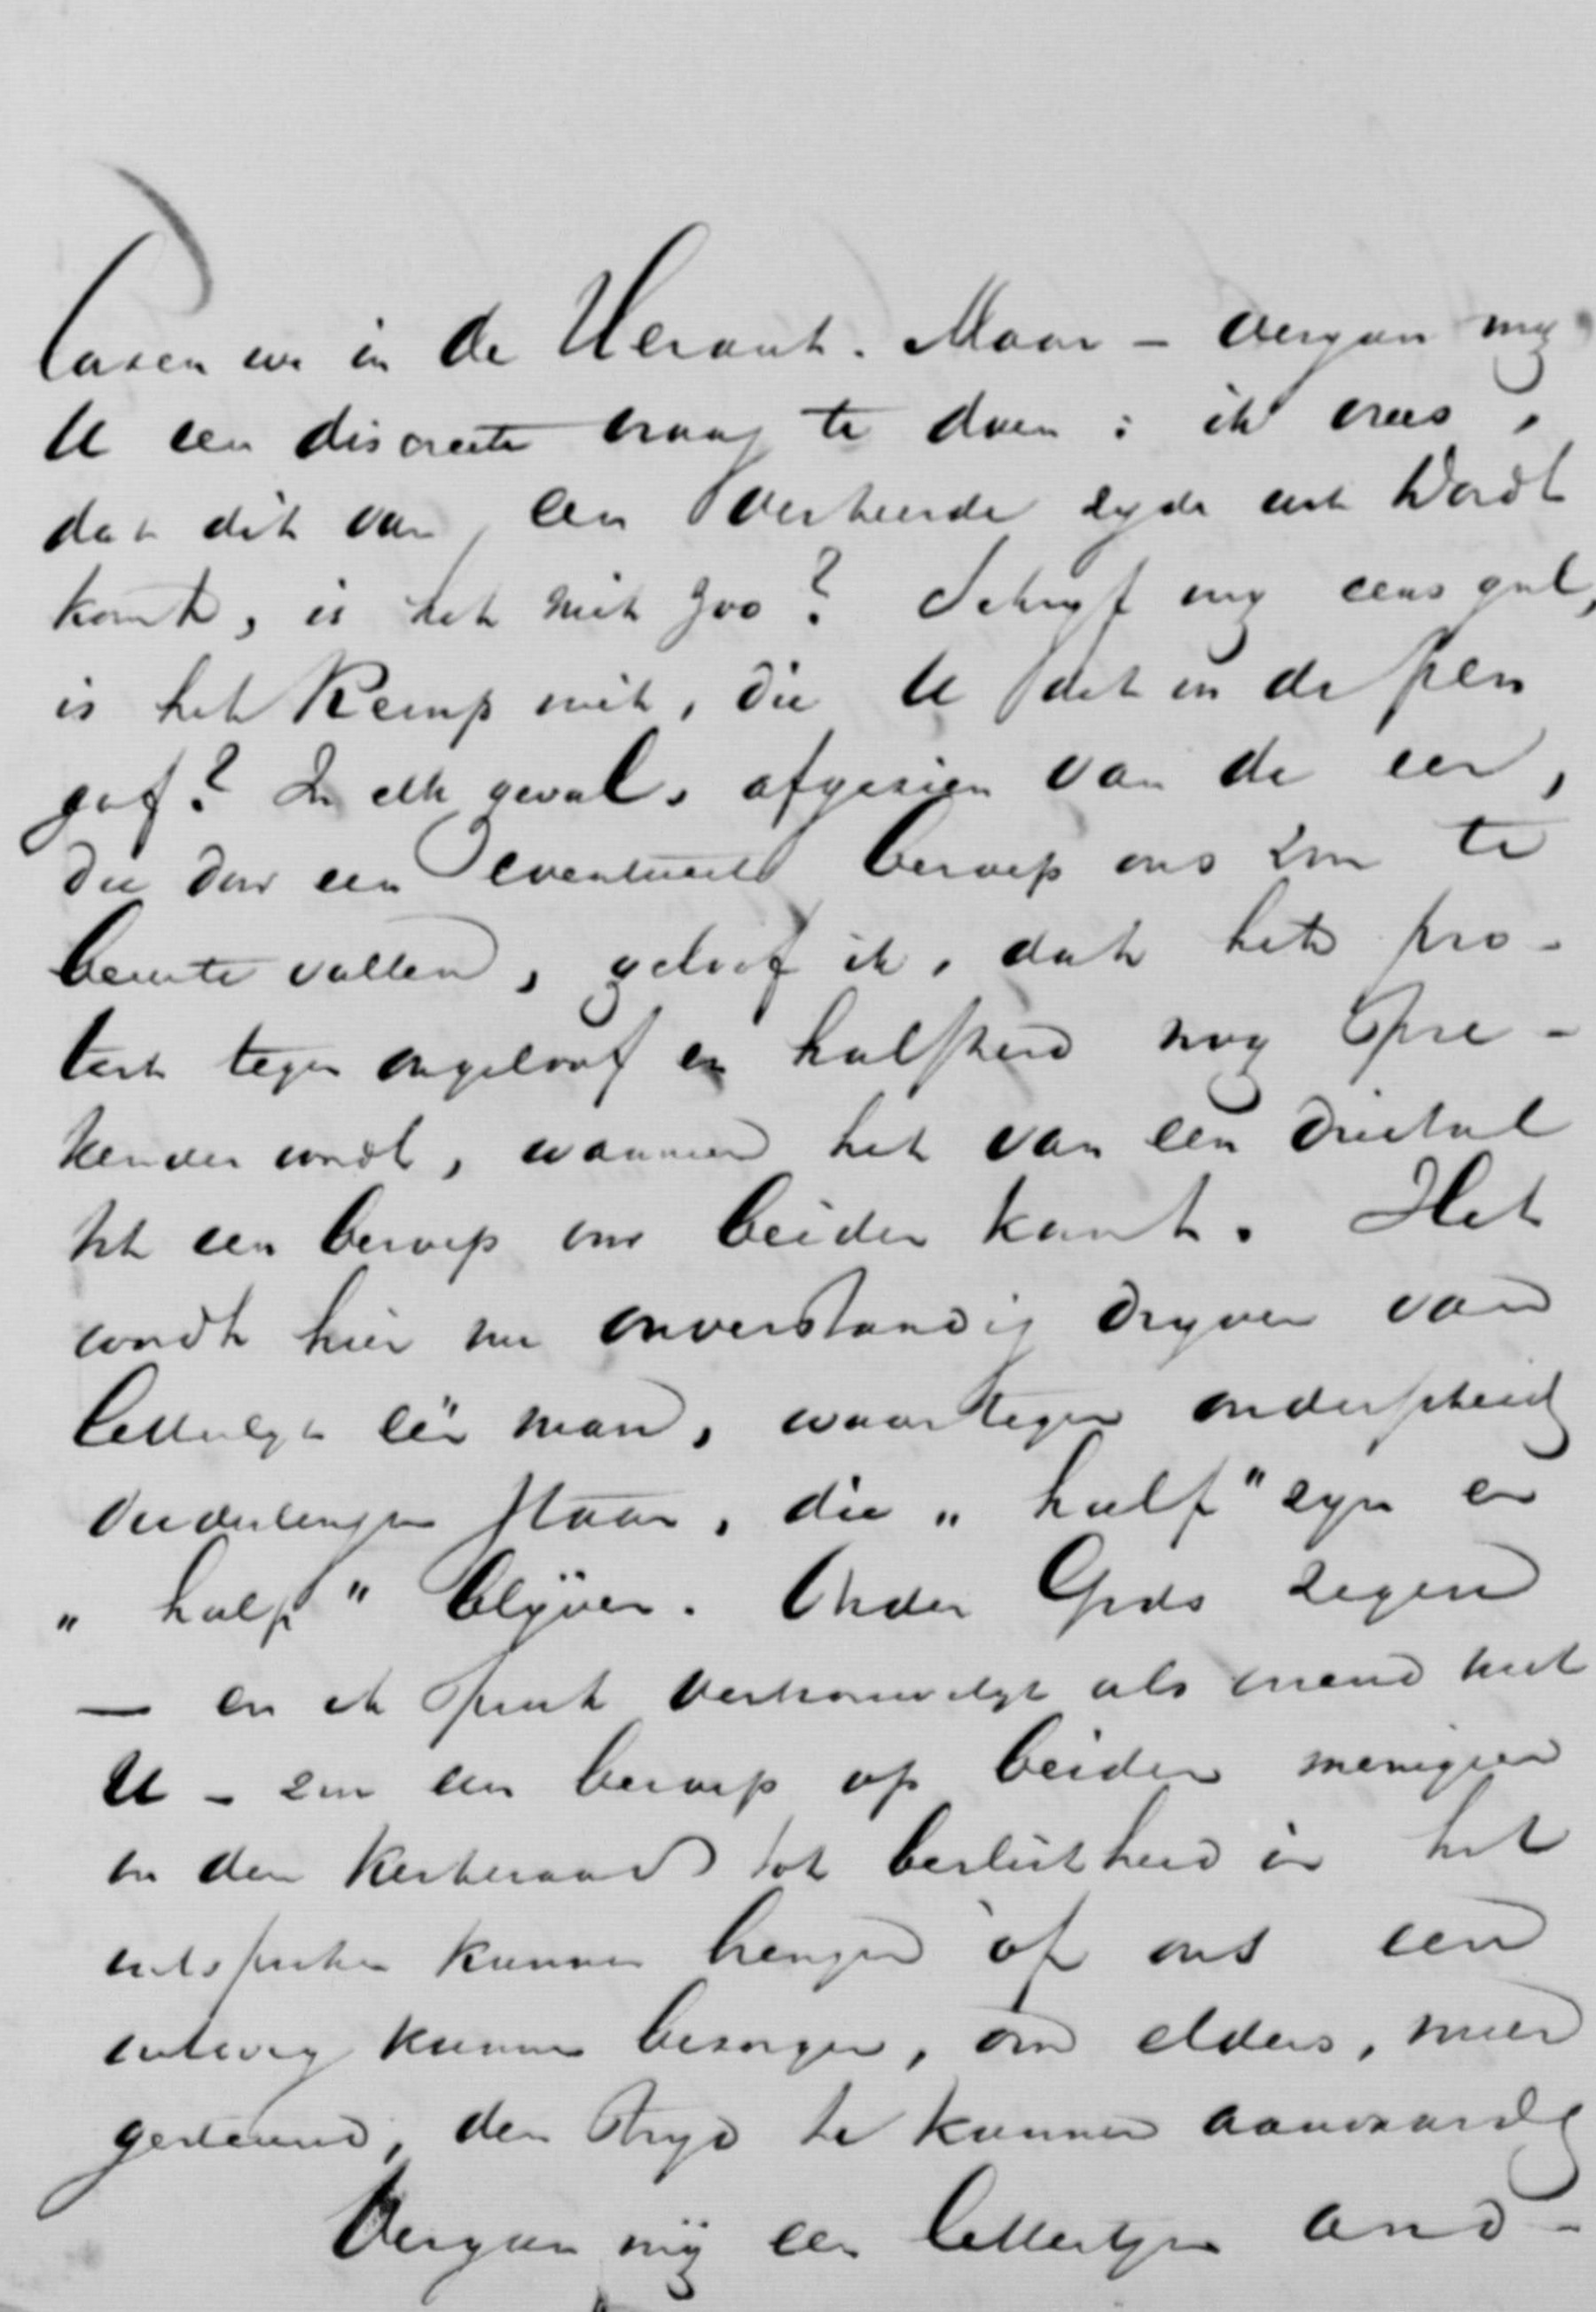 lazen we in de Heraut. Maar – vergun mij
U een discreete vraag te doen: ik vrees,
dat dit van een verkeerde zyde ent wordt
komt, is het niet zoo? Schryf my eens gul,
is het Kemp niet, die U dat in de pen
gaf? In elk geval, afgezien van de eer,
die door een eventueel beroep ons zou te
beurte vallen, geloof ik, dat het pro-
test tegen ongeloof en halfheid nog spre-
kender wordt, wanneer het van een drietal
tot een beroep om beider komt. Het
wordt hier nu onverstandig dryven van
letterlyk één man, waartegen
ouderlingen staan, die „half" zyn en
„half" blyven. Onder Gods zegen
— en ik spreek vertrouwelyk als vriend met
U – zou een beroep op beiden menigeen
in den Kerkeraad tot beslistheid in het
uitspreken kunnen brengen òf ons een
uitweg kunnen bezorgen, om elders, meer
gesteund, den stryd te kunnen aanvaarden
Vergun mij een lettertjen and-